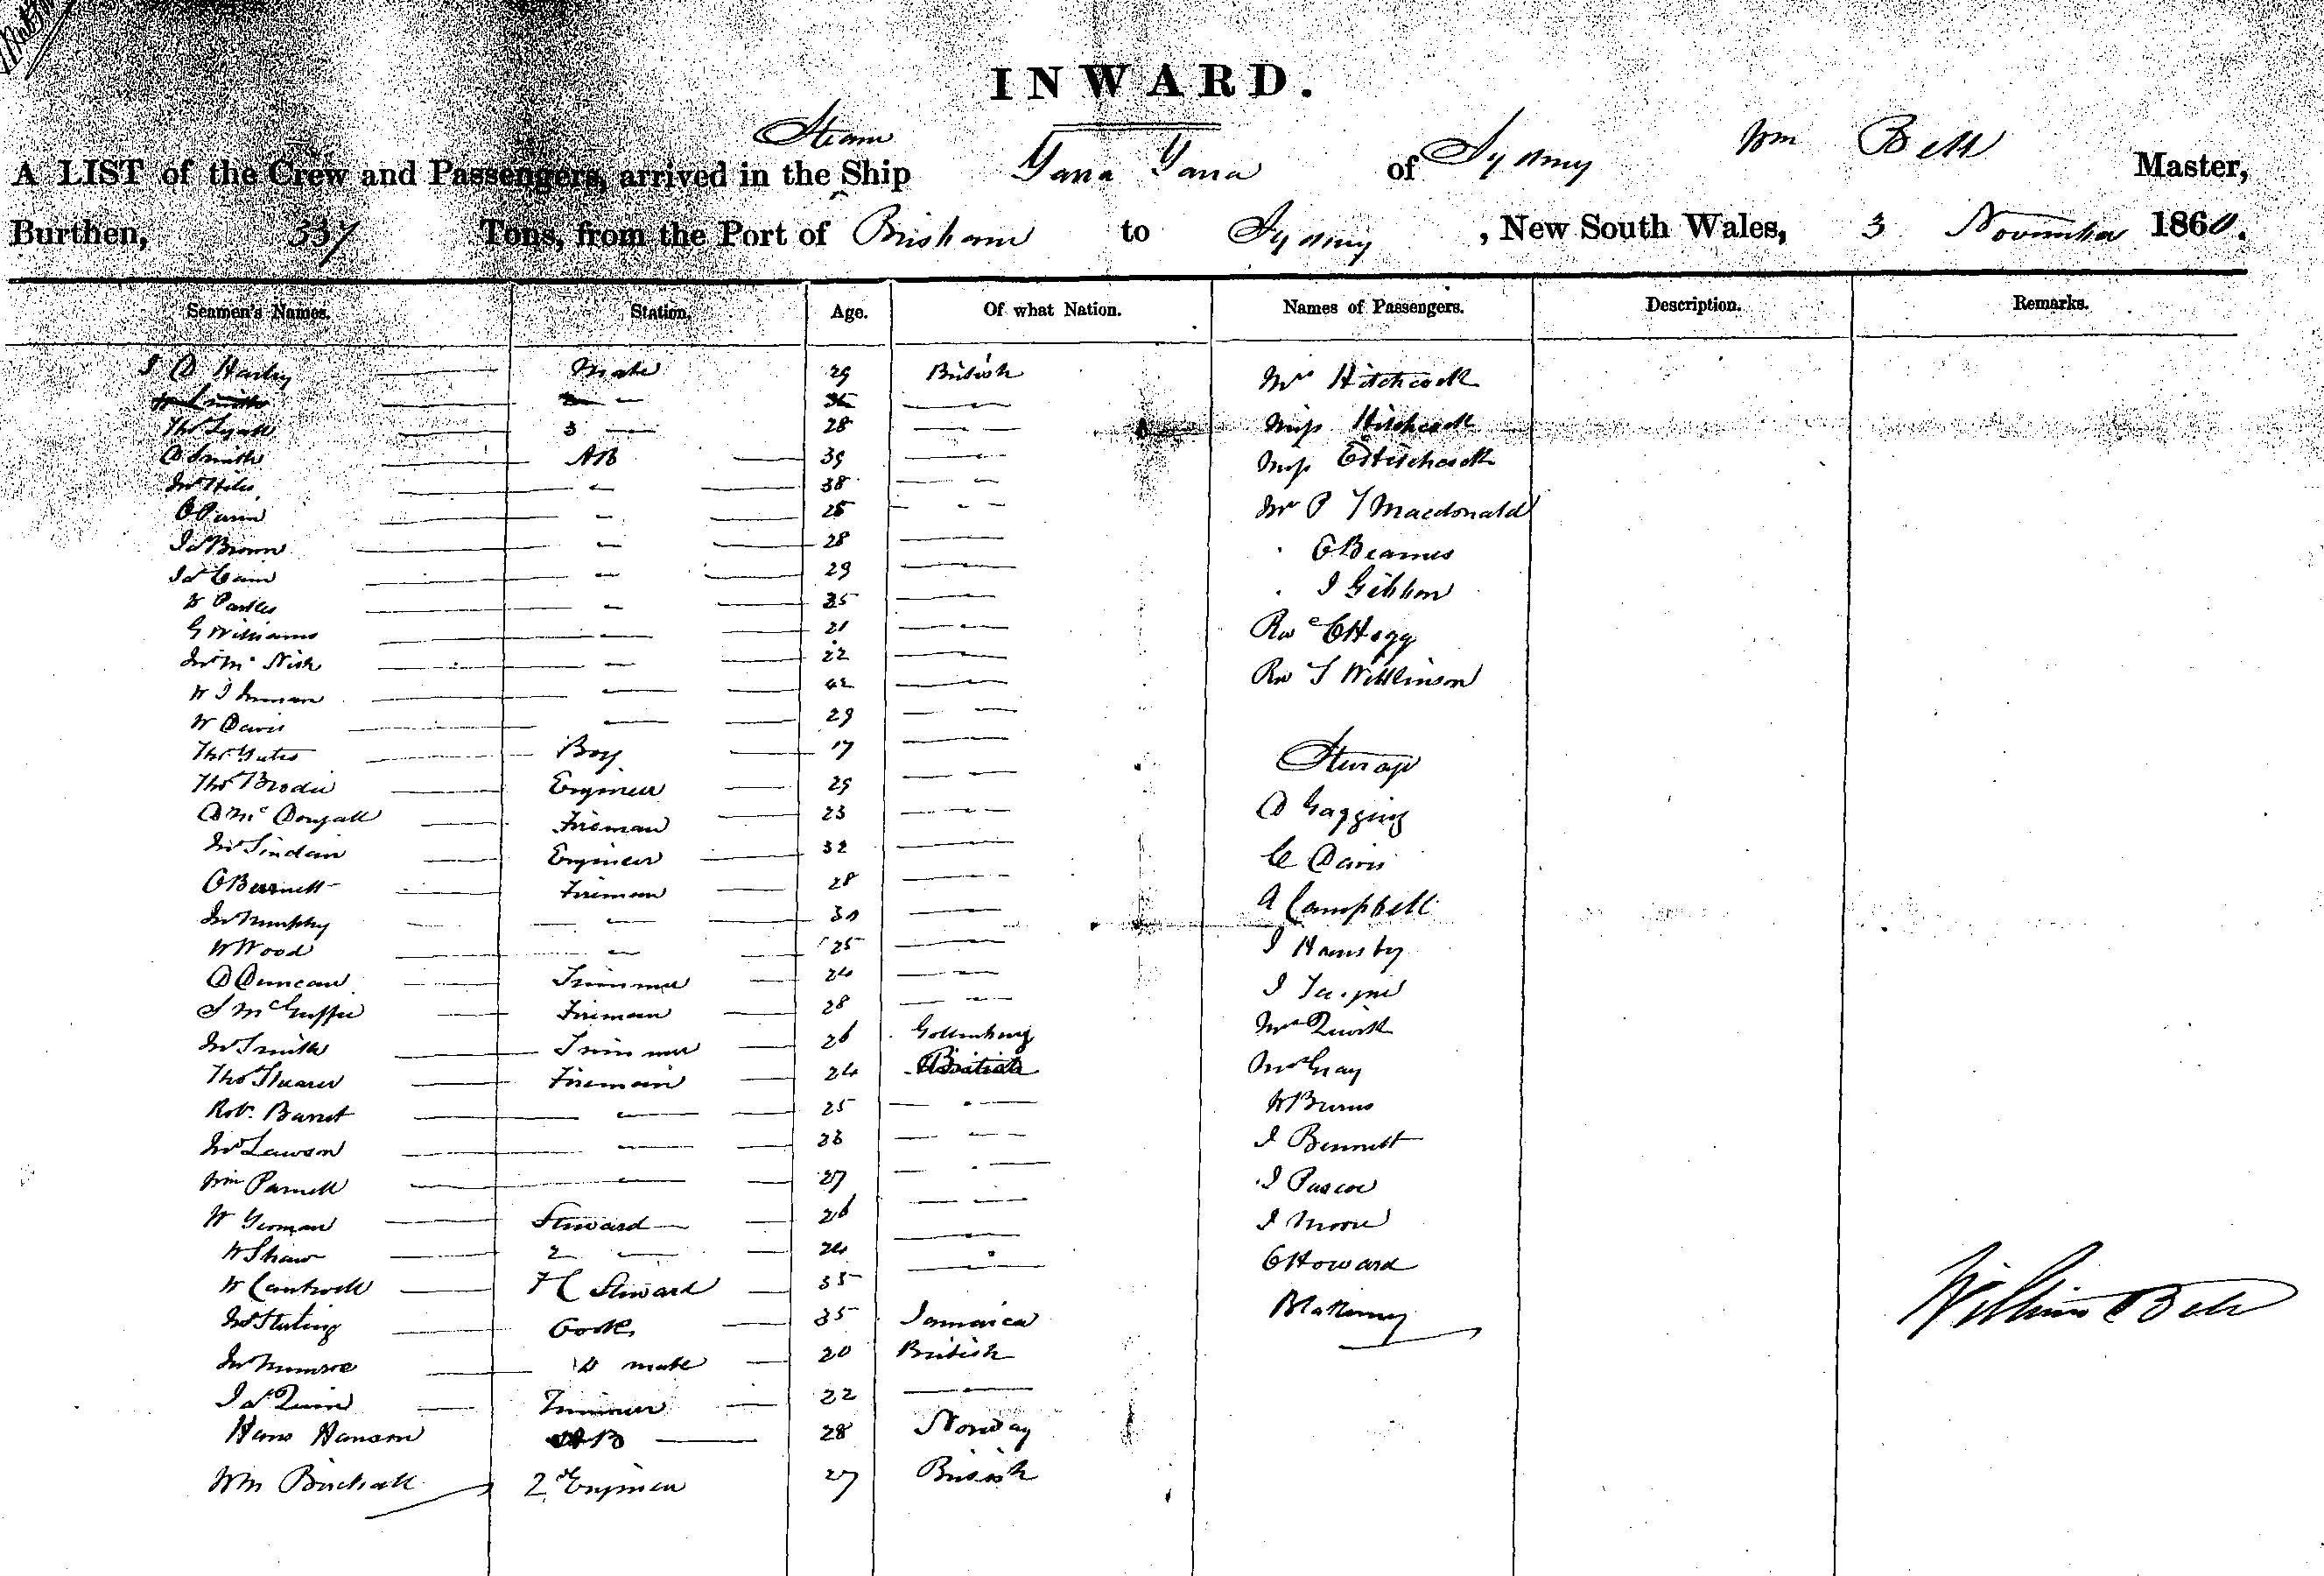 INWARD.
Steam
A LIST of the Crew and Passengers, arrived in the Ship Yarra Yarra of Sydney Wm Bell Master,
Burthen, 337 Tons, from the Port of Brisbane to Sydney , New South Wales, 3 November 1860.
Seamen's Names. Station. Age. Of what Nation. Names of Passengers. Description. Remarks.
J D Harley Mate 29 British Mrs Hitchcock
W Smith 2
Thos Lyall 3 28 Miss Hitchcock
D Smith AB 39 Miss E Hitchcock
Jno Hiles 38
25 Mr P T Macdonald
Jas Brown 28 Beames
Jas Cain 29 J Gibbon
25
G Williams 21 Rev C Hogg
Jno Mc Nish 22 Rev T Wilkinson
W J Inman 42
W Davis 29
Thos Yates Boy 17 Steerage
Thos Brodie Engineer 29
D McDougall Fireman 23 D Gagging
Jno Sinclair Engineer 32 C Davis
Burnett Fireman 28 A Campbell
Jno Murphy 30
W Wood 25 J Hornsby
D Duncan Trimmer 24 J
S McGuffie Fireman 28 Mrs Quirk
Jno Smith Trimmer 26 Gottenburg
Thos Shearer Fireman 24 British Mrs Gray
Robt Barret 25 W Burns
Jno Lawson 23 J Bennett
Wm Parnell 27 J Pascoe
W Yeoman Steward 26 J Moore
W Shaw 2 24 C Howard
W Cantwell F C Steward 35
Jno Sterling Cook 35 Jamaica
Jno Munroe Do mate 20 British
Jas Quinn Trimmer 22
Hans Hanson AB 28 Norway
Wm Birchall 2d Engineer 27 British
William Bell